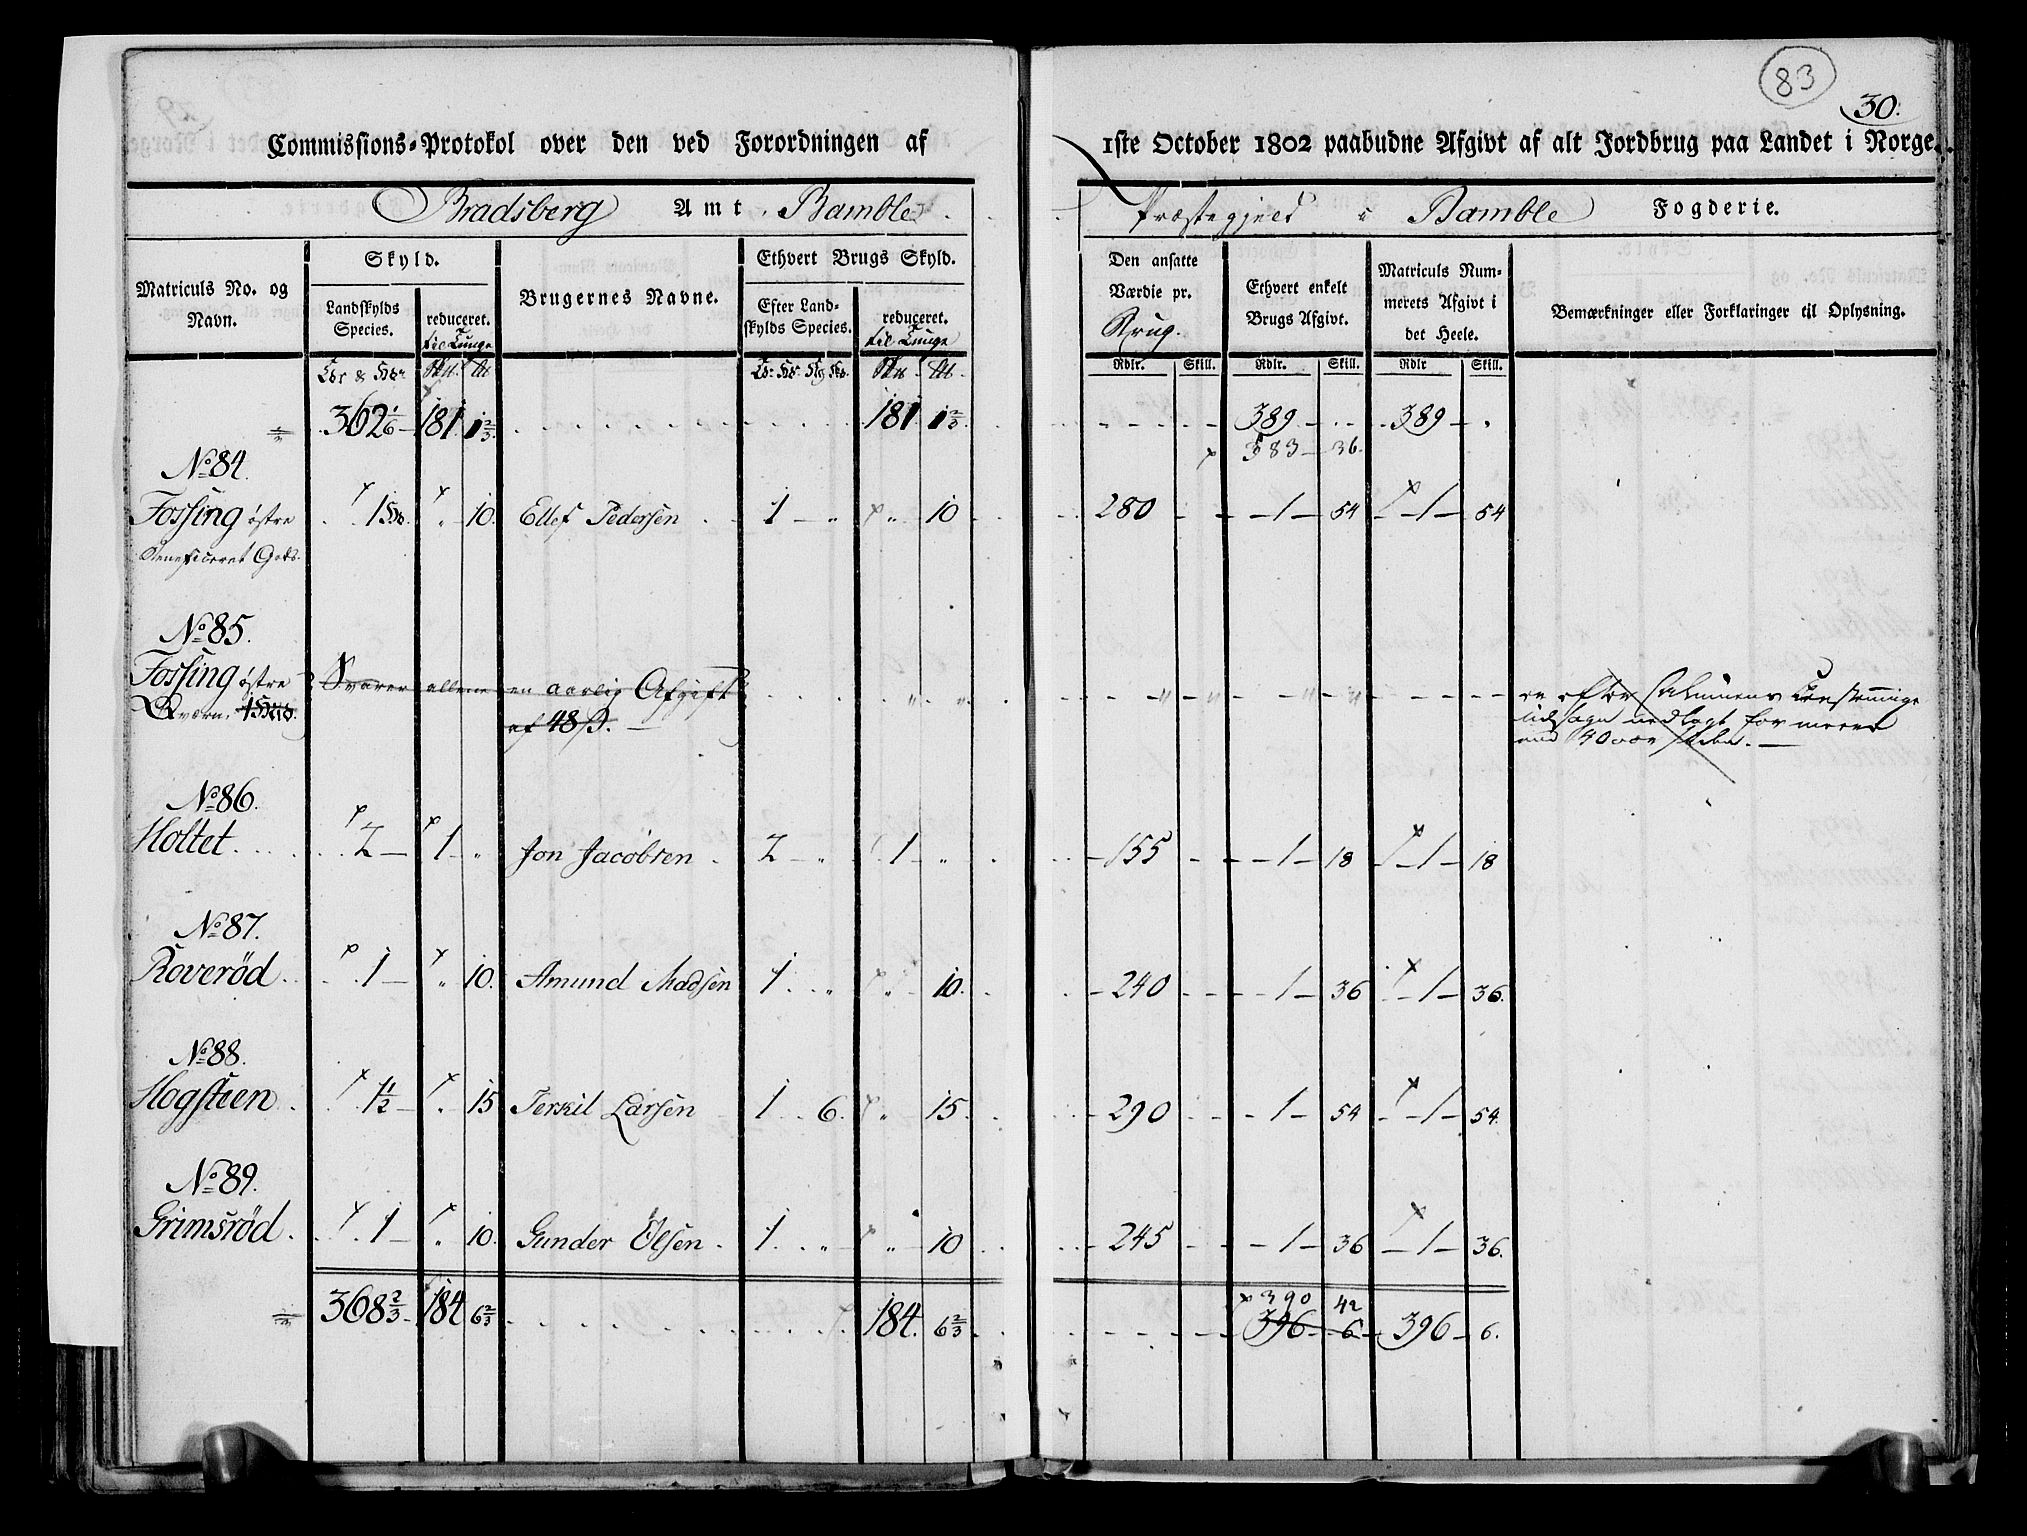 83
30.
Commissions-Protokol over den ved Forordningen af 1ste October 1802 paabudne Afgivt af alt Jordbrug paa Landet i Norge.
Bradsberg Amt. Bamble Præstegjeld i Bamble Fogderie.
Matriculs No. og Navn.
Skyld.
Landskylds Species.
reduceret. til Tunge
Brugernes Navne.
Ethvert Brugs Skyld.
Efter Landskylds Species.
reduceret. til Tunge
Den ansatte Værdie pr. Krug.
Ethvert enkelt Brugs Afgivt.
Matriculs Nummerets Afgivt i det Heele.
Bemærkninger eller Forklaringer til Oplysning.
Rdlr. Skill. Rdlr. Skill. Rdlr Skill.
362 1/6 181 1 2/3 181 1 2/3 389 389
583 36.
No 84.
Fossing østre 1 10. Ellef Pedersen 1 10 280 1 54 1 54
Beneficeret Gods.
No 85.
Fossing østre Svarer allene en aarlig Afgift
Qværn. af 48 ß.
er efter
udsagn nedlagt for meere
end 40 aar siden.
No 86.
Holtet. 2 1 Jon Jacobsen 2 1 155 1 18 1 18
No 87.
Roverød 1 10. Amund Madsen 1 10. 240 1 36 1 36.
No 88.
Hogsteen 1 1/2 15 Terskil Larsen 1 6. 15. 290 1 54 1 54.
No 89.
Grimsrød 1 10. Gunder Olsen 1 10 245 1 36 1 36.
390 42
368 2/3 184 6 2/3 184. 6 2/3 396 6 396 6.